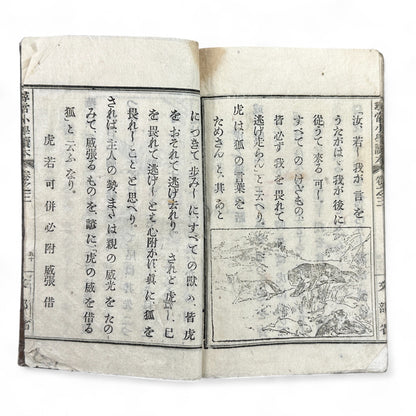 尋常小學讀本 卷之三
汝、若し我が言を
うたがはゞ、我が後に
從うて來る可し。
すべてのけもの、
皆必ず我を畏れて
逃げ走らん」と云へり。
虎は、狐の言葉を
ためさんと、其あと
文部省
につきて歩みしに、すべての獸、皆虎
をおそれて逃げ去れり。されど虎は、己
を畏れて逃げしとも心附かず、眞に狐を
畏れしことゝ思へり。
されば、主人の勢、または親の威光をたの
みて、威張るものを、諺に「虎の威を借る
狐」と云ふなり。
虎 若 可 併 必 附 威 張 借
尋常小學讀本 卷之三
文部省